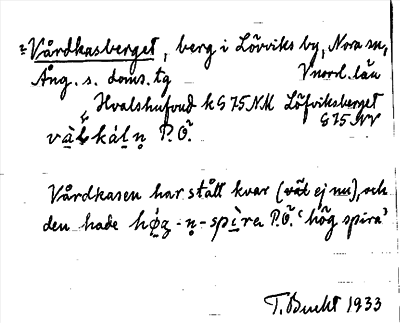 =Vårdkasberget, berg i Lövviks by, Nora sn,
Ång. s. doms. tg Vnorrl. län
Hvalshufvud k G75.N.M. Löfviksberget
G75 NV
P.Ö.
Vårdkasen har stått kvar (väl ej nu), och
den hade hǿg-n̥-spìra P.Ö. ‘hög spira’
T. Bucht 1933